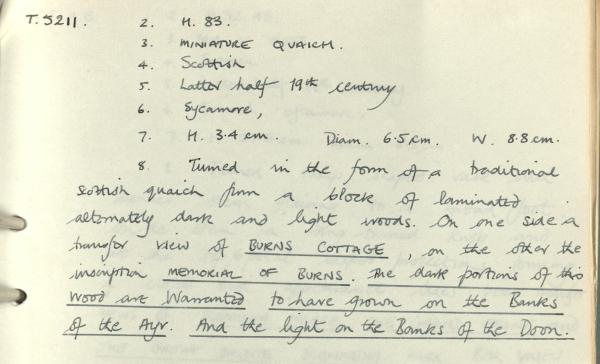 T.5211. 2. H. 83.
3. MINIATURE QUAICH.
4. Scottish
5. Latter half 19th century
6. Sycamore,
7. H. 3.4 cm. Diam. 6.5 cm. W. 8.8 cm.
8. Turned in the form of a traditional
scottish quaich from a block of laminated
alternately dark and light woods. On one side a
transfer view of BURNS COTTAGE, on the other the
inscription MEMORIAL OF BURNS. The dark portions of this
wood are Warranted to have grown on the Banks
of the Ayr. And the light on the Banks of the Doon.